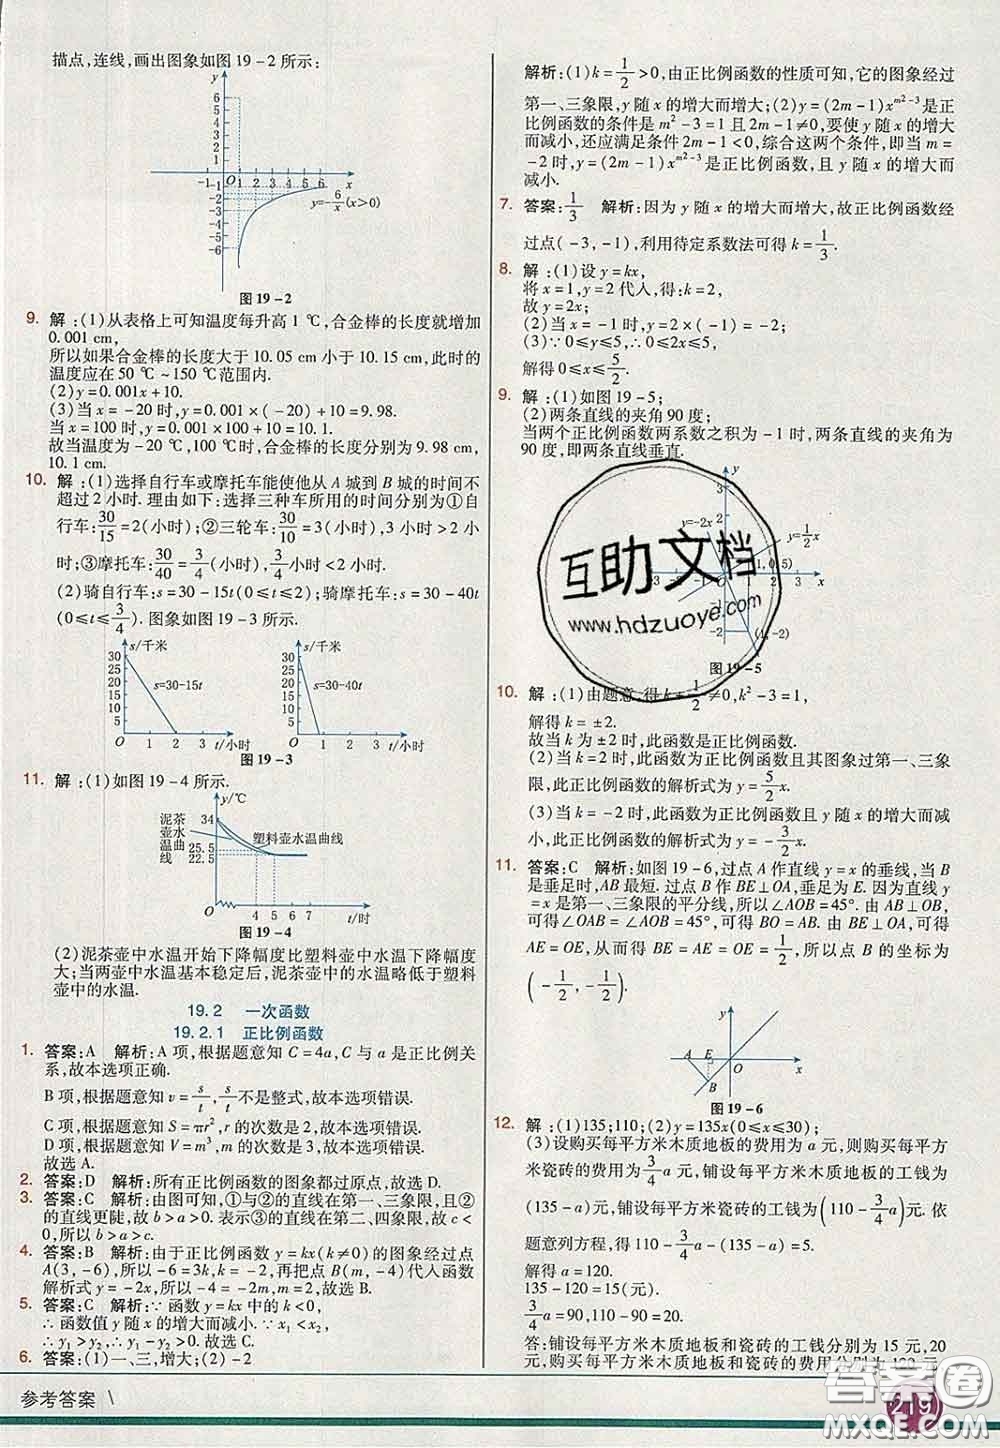 描点,连线,画出图象如图 19-2 所示:
y
6
5
4
3
2
1
-1 O 1 2 3 4 5 6 x
-1
-2
-3
-4
-5
-6
y=-6/x(x>0)
图 19-2
9. 解:(1)从表格上可知温度每升高 1 ℃,合金棒的长度就增加
0.001 cm,
所以如果合金棒的长度大于 10.05 cm 小于 10.15 cm,此时的
温度应在 50 ℃~150 ℃范围内.
(2)y=0.001x+10.
(3)当 x=-20 时,y=0.001×(-20)+10=9.98.
当 x=100 时,y=0.001×100+10=10.1.
故当温度为-20 ℃,100 ℃时,合金棒的长度分别为 9.98 cm,
10.1 cm.
10. 解:(1)选择自行车或摩托车能使他从 A 城到 B 城的时间不
超过 2 小时. 理由如下:选择三种车所用的时间分别为①自
行车:30/15=2(小时);②三轮车:30/10=3(小时),3 小时>2 小
时;③摩托车:30/40=3/4(小时).
(2)骑自行车:s=30-15t(0≤t≤2);骑摩托车:s=30-40t
(0≤t≤3/4). 图象如图 19-3 所示.
s/千米
30
25
20
15
10
5
O 1 2 3 t/小时
s=30-15t
s/千米
30
25
20
15
10
5
O 1 2 3 t/小时
s=30-40t
图 19-3
11. 解:(1)如图 19-4 所示.
y/℃
泥茶
壶水
温曲
线
34
25.5
22.5
塑料壶水温曲线
O 4 5 6 7 t/时
图 19-4
(2)泥茶壶中水温开始下降幅度比塑料壶中水温下降幅度
大;当两壶中水温基本稳定后,泥茶壶中的水温略低于塑料
壶中的水温.
19.2 一次函数
19.2.1 正比例函数
1. 答案:A 解析:A 项,根据题意知 C=4a,C 与 a 是正比例关
系,故本选项正确.
B 项,根据题意知 v=s/t,s/t不是整式,故本选项错误.
C 项,根据题意知 S=πr²,r 的次数是 2,故本选项错误.
D 项,根据题意知 V=m³,m 的次数是 3,故本选项错误.
故选 A.
2. 答案:D 解析:所有正比例函数的图象都过原点,故选 D.
3. 答案:C 解析:由图可知,①与②的直线在第一、三象限,且②
的直线更陡,故 b>a>0. 表示③的直线在第二、四象限,故 c<
0,所以 b>a>c.
4. 答案:B 解析:由于正比例函数 y=kx(k≠0)的图象经过点
A(3,-6),所以-6=3k,k=-2,再把点 B(m,-4)代入函数
解析式 y=-2x,得-4=-2m,解得 m=2,故选 B.
5. 答案:C 解析:∵函数 y=kx 中的 k<0,
∴函数值 y 随 x 的增大而减小. ∵x₁<x₂,
∴y₁>y₂,∴y₁-y₂>0. 故选 C.
6. 答案:(1)一、三,增大;(2)-2
解析:(1)k=1/2>0,由正比例函数的性质可知,它的图象经过
第一、三象限,y 随 x 的增大而增大;(2)y=(2m-1)x^(m²-3)是正
比例函数的条件是 m²-3=1 且 2m-1≠0,要使 y 随 x 的增大
而减小,还应满足条件 2m-1<0,综合这两个条件,即当 m=
-2 时,y=(2m-1)x^(m²-3)是正比例函数,且 y 随 x 的增大而
减小.
7. 答案:1/3 解析:因为 y 随 x 的增大而增大,故正比例函数经
过点(-3,-1),利用待定系数法可得 k=1/3.
8. 解:(1)设 y=kx,
将 x=1,y=2 代入,得 k=2,
故 y=2x;
(2)当 x=-1 时,y=2×(-1)=-2;
(3)∵0≤y≤5,∴0≤2x≤5,
解得 0≤x≤5/2.
9. 解:(1)如图 19-5;
(2)两条直线的夹角 90 度;
当两个正比例函数两系数之积为-1 时,两条直线的夹角为
90 度,即两条直线垂直.
y
y=-2x
y=1/2x
(1,0.5)
1 2 3 x
-2
(1,-2)
图 19-5
互助文档
www.hdzuoye.com
10. 解:(1)由题意,得 k=-1/2≠0,k²-3=1,
解得 k=±2.
故当 k 为±2 时,此函数是正比例函数.
(2)当 k=2 时,此函数为正比例函数且其图象过第一、三象
限,此正比例函数的解析式为 y=5/2x.
(3)当 k=-2 时,此函数为正比例函数且 y 随 x 的增大而减
小,此正比例函数的解析式为 y=-3/2x.
11. 答案:C 解析:如图 19-6,过点 A 作直线 y=x 的垂线,当 B
是垂足时,AB 最短. 过点 B 作 BE⊥OA,垂足为 E. 因为直线 y
=x 是第一、三象限的平分线,所以∠AOB=45°. 由 AB⊥OB,
可得∠OAB=∠AOB=45°,可得 BO=AB. 由 BE⊥OA,可得
AE=OE,从而得 BE=AE=OE=1/2,所以点 B 的坐标为
(-1/2,-1/2).
y
A E O x
B
图 19-6
12. 解:(1)135;110;(2)y=135x(0≤x≤30);
(3)设购买每平方米木质地板的费用为 a 元,则购买每平方
米瓷砖的费用为3/4a 元,铺设每平方米木质地板的工钱为
(135-a)元,铺设每平方米瓷砖的工钱为(110-3/4a)元. 依
题意列方程,得 110-3/4a-(135-a)=5.
解得 a=120.
135-120=15(元).
3/4a=90,110-90=20.
答:铺设每平方米木质地板和瓷砖的工钱分别为 15 元,20
元,购买每平方米木质地板和瓷砖的费用分别为 120 元
参考答案 \
219
答案圈
MXQE.COM